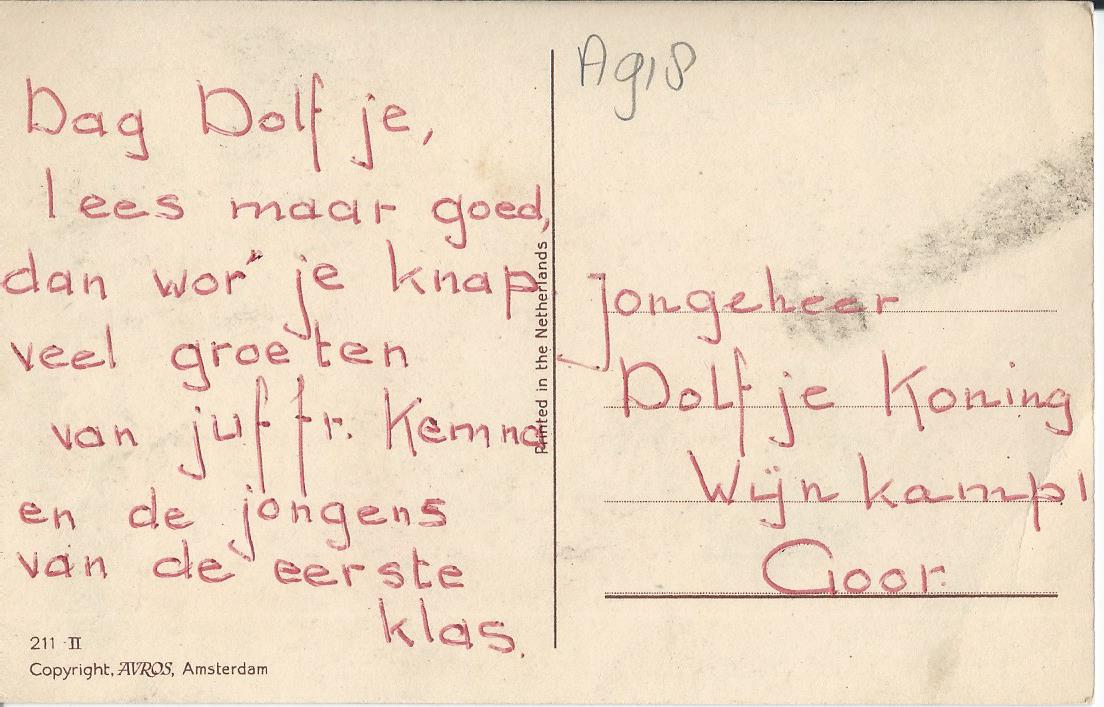 Dag Dolfje,
lees maar goed,
dan wor' je knap
veel groeten
van juffr. Kemna
en de jongens
van de eerste
klas.
211-II
Copyright, AVROS, Amsterdam
Printed in the Netherlands
Ag18
Jongeheer
Dolfje Koning
Wijnkamp1
Goor.